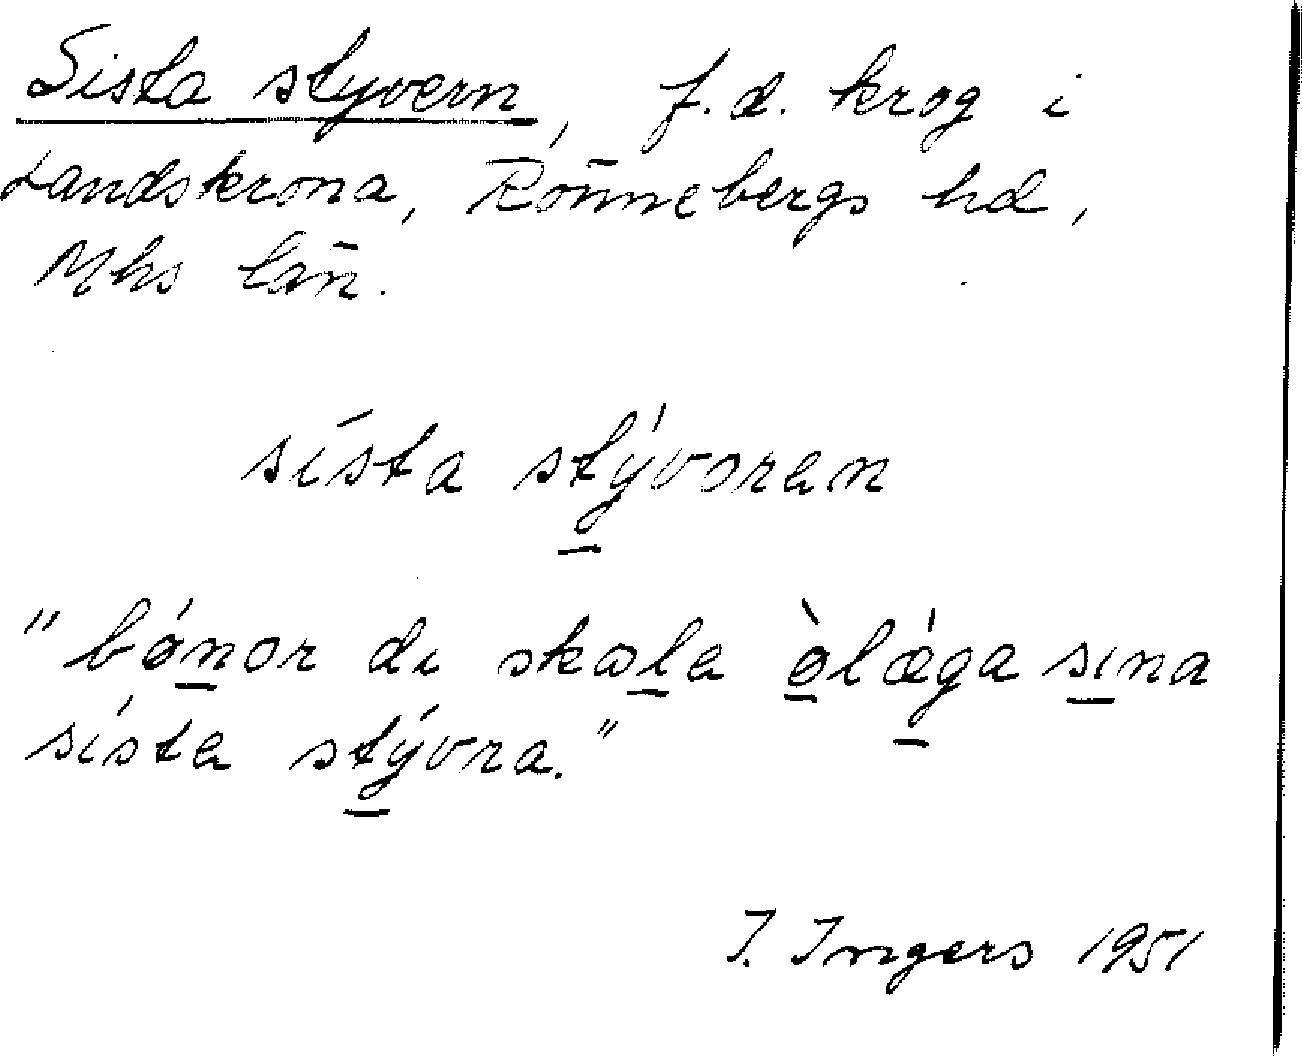 Sista styvern, f.d. krog i
Landskrona, Rönnebergs hd,
Mhs län.
sísta stývoren
"bǿnor di skole ə̀lǽga sina
síste stývra."
I. Ingers 1951